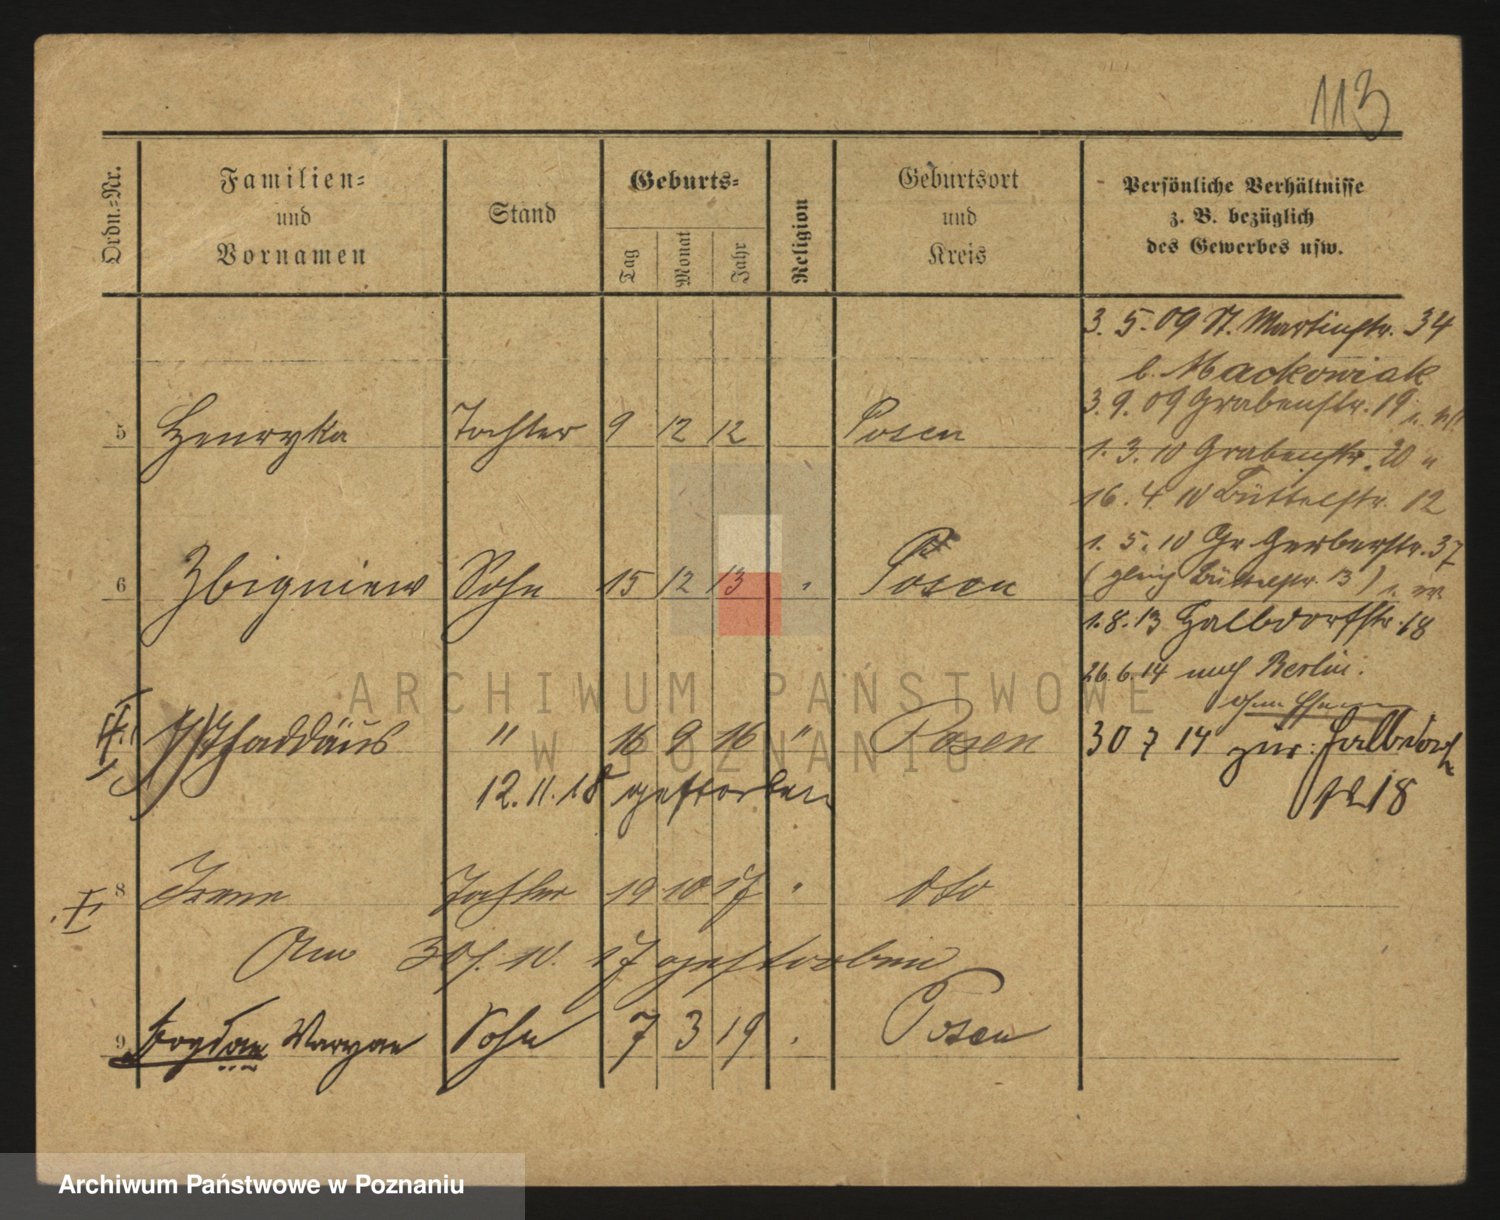 113
Ordn.-Nr.
Familien-
und
Vornamen
Stand
Geburts-
Tag
Monat
Jahr
Religion
Geburtsort
und
Kreis
Persönliche Verhältnisse
z. B. bezüglich
des Gewerbes usw.
3. 5. 09 St. Martinstr. 34
b. Mackowiak
3. 9. 09 Grabenstr. 19
5 Henryka Tochter 9 12 12 Posen
1. 3. 10 Grabenstr. 20
16. 4. 10 Büttelstr. 12
1. 5. 10 Gr Gerberstr. 37
6 Zbigniew Sohn 15 12 13 " Posen
(gleich Büttelstr. 13)
1. 8. 13 Halbdorfstr. 18
26. 6. 14 nach Berlin.
Thaddäus " 16 9 16 " Posen
30 7 14 zur: Halbdorf
12. 11. 18 gestorben
18
8 Irene Tochter 19 10 17 " dto
Am 30. 10. 17 gestorben
9 Bogdan Maryan Sohn 7 3 19 " Posen
ARCHIWUM PAŃSTWOWE
W POZNANIU
Archiwum Państwowe w Poznaniu